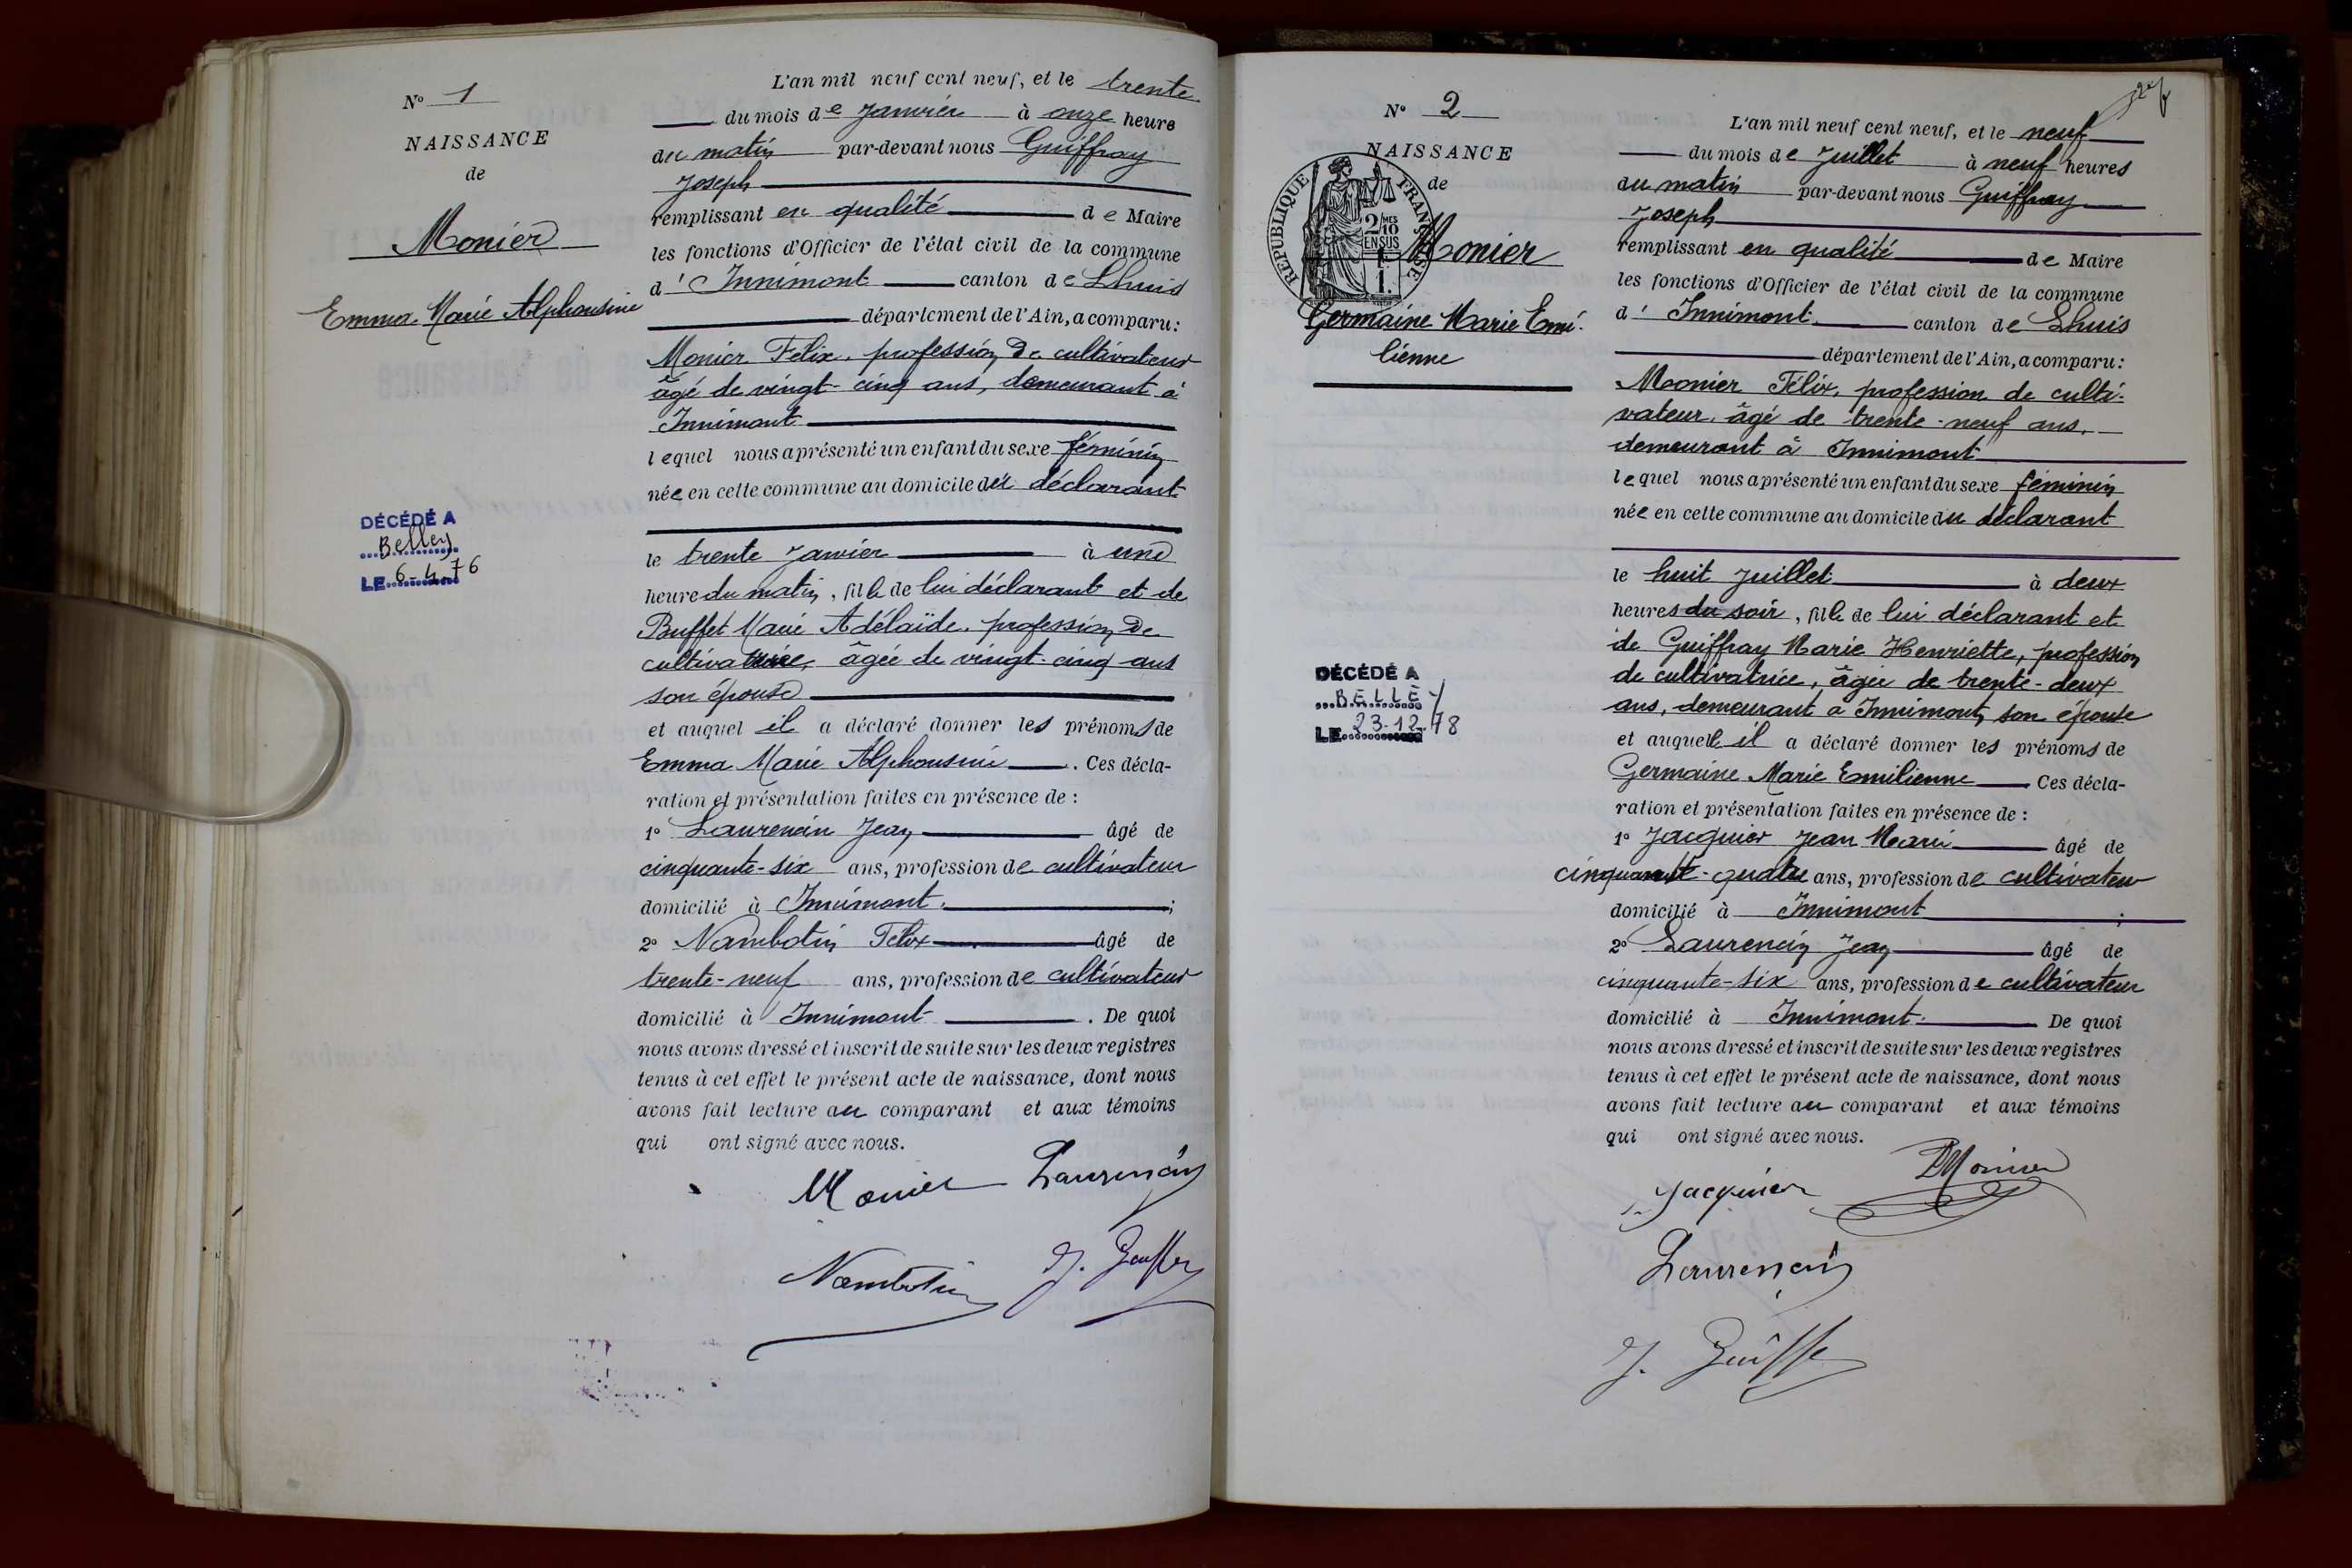 N° 1
NAISSANCE
de
Monier
Emma Marie Alphonsine
DÉCÉDÉ A
Belley
LE 6-4-76
L'an mil neuf cent neuf, et le trente
du mois de Janvier à onze heure
du matin par-devant nous Guiffray
Joseph
remplissant en qualité de Maire
les fonctions d'Officier de l'état civil de la commune
d' Innimont canton de Lhuis
département de l'Ain, a comparu :
Monier Félix, profession de cultivateur
âgé de vingt-cinq ans, demeurant à
Innimont
lequel nous a présenté un enfant du sexe féminin
née en cette commune au domicile du déclarant
le trente Janvier à une
heure du matin, fille de lui déclarant et de
Buffet Marie Adélaïde, profession de
cultivatrice, âgée de vingt-cinq ans
son épouse
et auquel il a déclaré donner les prénoms de
Emma Marie Alphonsine. Ces décla-
ration et présentation faites en présence de :
1° Laurencin Jean âgé de
cinquante-six ans, profession de cultivateur
domicilié à Innimont ;
2° Nambotin Félix âgé de
trente-neuf ans, profession de cultivateur
domicilié à Innimont. De quoi
nous avons dressé et inscrit de suite sur les deux registres
tenus à cet effet le présent acte de naissance, dont nous
avons fait lecture au comparant et aux témoins
qui ont signé avec nous.
Monier Laurencin
Nambotin J. Guiffray
N° 2
NAISSANCE
de
RÉPUBLIQUE FRANÇAISE
2/10 MES
EN SUS
Monier
Germaine Marie Emi-
lienne
DÉCÉDÉ A
BELLEY
LE 23-12-78
L'an mil neuf cent neuf, et le neuf
du mois de Juillet à neuf heures
du matin par-devant nous Guiffray
Joseph
remplissant en qualité de Maire
les fonctions d'Officier de l'état civil de la commune
d' Innimont canton de Lhuis
département de l'Ain, a comparu :
Monier Félix, profession de culti-
vateur, âgé de trente-neuf ans,
demeurant à Innimont
lequel nous a présenté un enfant du sexe féminin
née en cette commune au domicile du déclarant
le huit Juillet à deux
heures du soir, fille de lui déclarant et
de Guiffray Marie Henriette, profession
de cultivatrice, âgée de trente-deux
ans, demeurant à Innimont, son épouse
et auquelle il a déclaré donner les prénoms de
Germaine Marie Emilienne Ces décla-
ration et présentation faites en présence de :
1° Jacquier Jean Marie âgé de
cinquante-quatre ans, profession de cultivateur
domicilié à Innimont ;
2° Laurencin Jean âgé de
cinquante-six ans, profession de cultivateur
domicilié à Innimont. De quoi
nous avons dressé et inscrit de suite sur les deux registres
tenus à cet effet le présent acte de naissance, dont nous
avons fait lecture au comparant et aux témoins
qui ont signé avec nous.
Jacquier Monier
Laurencin
J. Guiffray